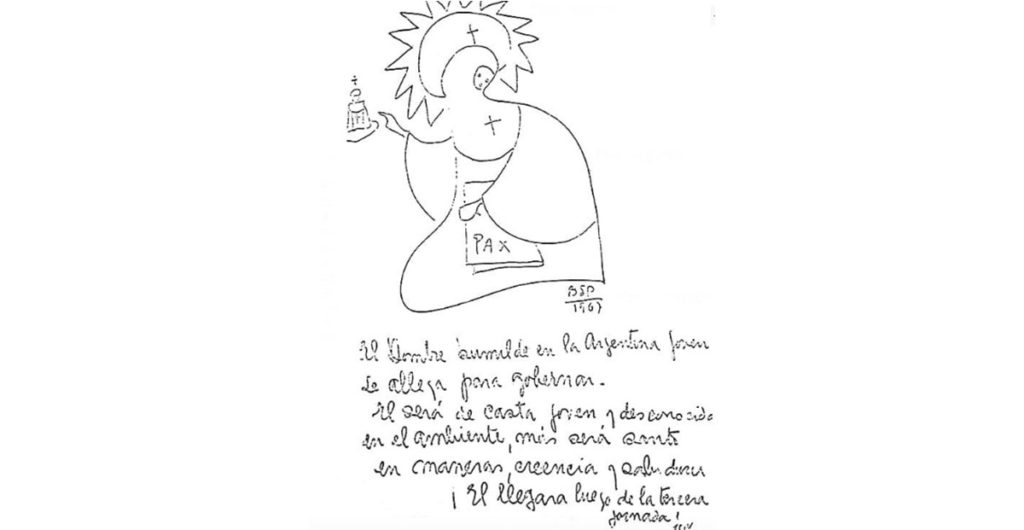 PAX
BSP
1967
El Hombre humilde en la Argentina joven
Se allega para gobernar.
El será de casta joven y desconocido
en el ambiente, más será santo
en maneras, creencia y sabiduria
¡El llegara luego de la tercera
jornada!